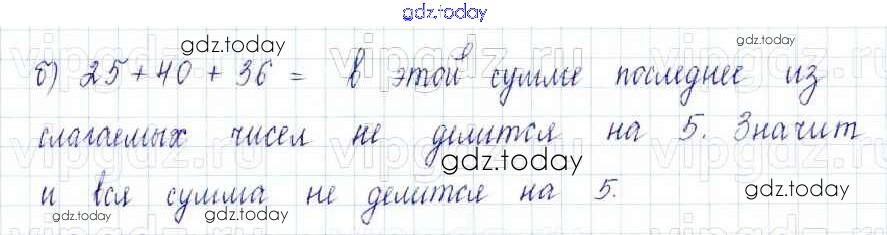 gdz.today
б) 25 + 40 + 36 = в этой сумме последнее из
слагаемых чисел не делится на 5. Значит
и вся сумма не делится на 5.
gdz.today
gdz.today
gdz.today
gdz.today
gdz.today
gdz.today